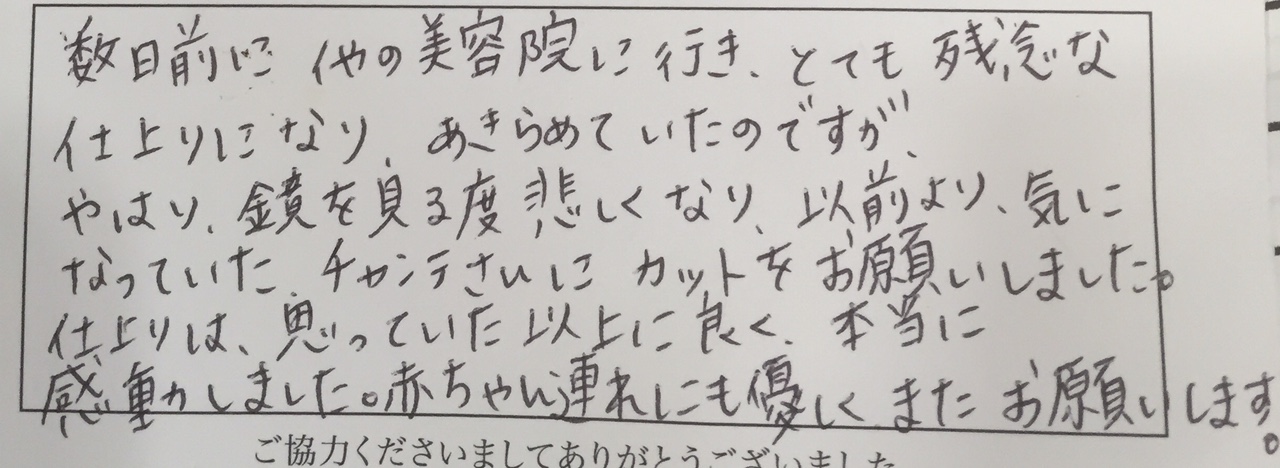 数日前に他の美容院に行き、とても残念な
仕上りになり、あきらめていたのですが、
やはり、鏡を見る度悲しくなり、以前より、気に
なっていた、チャンテさんに カットをお願いしました。
仕上りは、思っていた以上に良く、本当に
感動しました。赤ちゃん連れにも優しく、またお願いします。
ご協力くださいましてありがとうございました